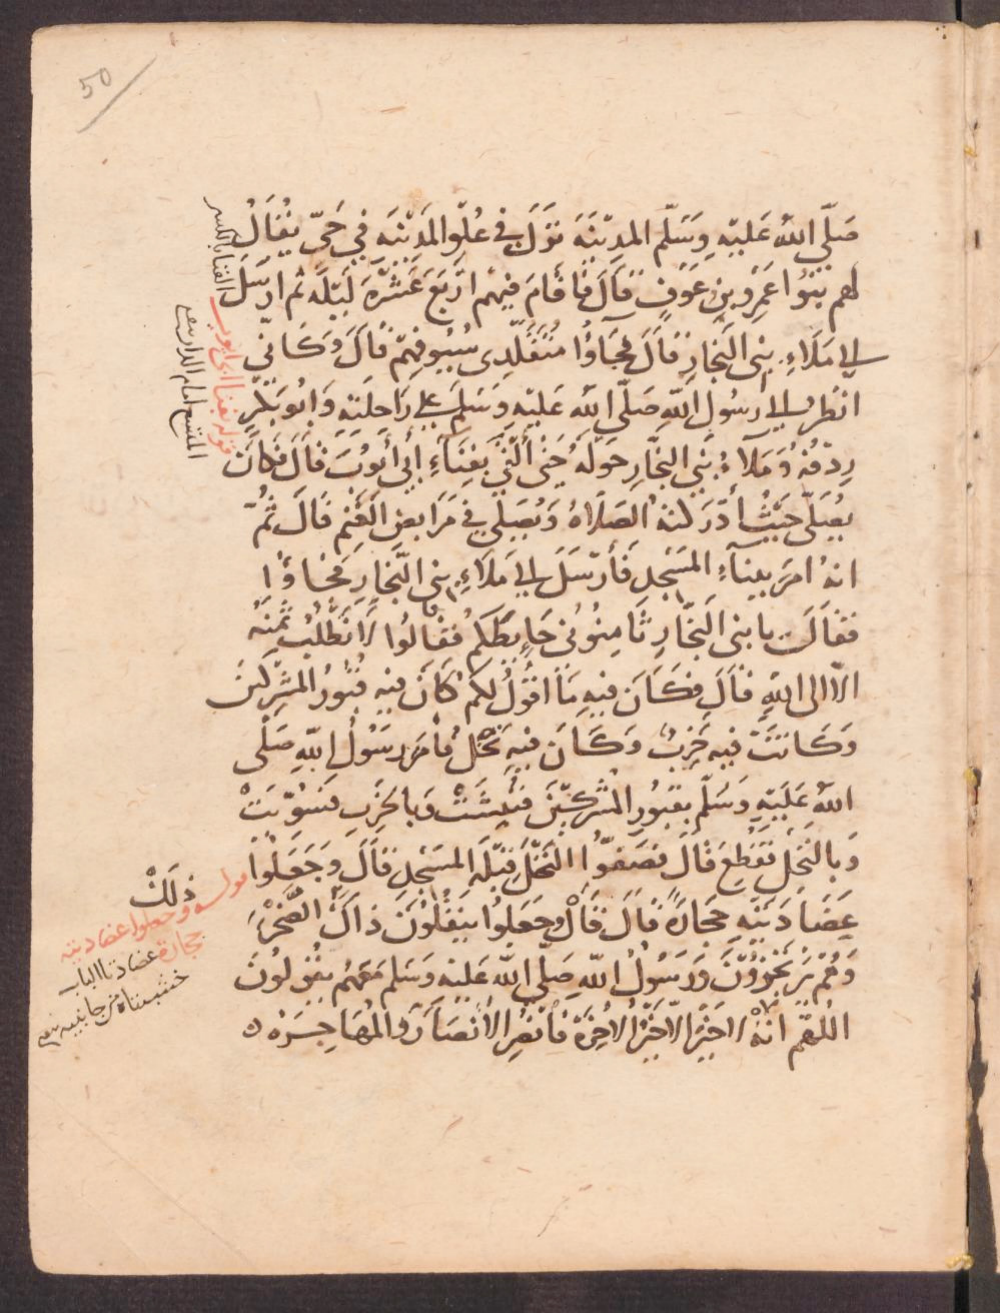 50
صَلَّى اللهُ عَلَيْهِ وَسَلَّم المَدِيْنَةَ نَزَلَ فِي عُلْوِ المَدِيْنَةِ فِي حَيٍّ يُقَالُ
لهم بَنُوا عَمْرِو بنِ عَوْفٍ قَالَ فَأَقَامَ فِيْهِمْ ارْبَعَ عَشْرَةَ لَيْلَةً ثم ارسَلَ
الى مَلَاءِ بنِى النجارِ قَالَ فجَاوُا مُتَقَلِّدِى سُيُوفِهِمْ قَالَ وَكَانِّي
انظرُ الى رَسُولِ اللهِ صَلَّى اللهُ عَليْهِ وَسَلَّمَ على رَاحِلَتِهِ وَابُو بَكْرٍ
رِدْفُهُ وَمَلَآءُ بَنِي النجّارِ حَوْلَهُ حَتى أَلْقَى بِفِنَآءِ أَبِي أَيُّوبَ قَالَ فَكَانَ
يُصَلّى حَيْثُ أَدْرَكَتهُ الصَلَاةُ وَيُصَلِّي فِي مَرَابِضِ الغَنَمِ قَالَ ثُمَّ
انهُ امرَ ببِنَآءِ المَسْجِدِ فَأَرْسَلَ الى مَلَاءِ بنى النَّجَّارِ فجَاؤُا
فقَالَ يا بنى النَّجَّارِ ثَامِنُونى حَايِطَكمْ فقَالُوا لَا نَطْلُبُ ثَمَنَهُ
الَّا الى اللهِ قَالَ فكَانَ فيهِ مَا اقُولُ لكمْ كَانَ فيهِ قُبُورُ المُشْرِكِينَ
وَكَانَتْ فِيهِ خَرِبٌ وَكَانَ فيهِ نَخْلٌ فأمَرَ رَسُولُ اللهِ صَلَّى
اللهُ عَلَيْهِ وَسَلَّمَ بقبُورِ المُشْركِيْنَ فَنُبِشَتْ وَبالخَرِبِ فَسُوِّيَتْ
وَبالنَخْلِ فَقُطِعَ قَالَ فصَفُّوا النَّخْلَ قِبْلَةَ المَسْجِدِ قَالَ وَجَعَلُوا
عَضَادَتَيْهِ حِجَارَةً قَالَ قَالَ وجَعَلوُا يَنقُلُوْنَ ذَاكَ الصَّخْرَ
وَهُمْ يَرْتَجِزُوْنَ وَرَسُولُ اللهِ صَلى اللهُ عَليْهِ وَسَلم مَعَهُمْ يقُولُونَ
اللهُمَّ انهُ لَا خَيْرَ الَّا خَيْرُ الاخِرَة فَانْصُرِ الأَنصَارَ وَالمُهَاجِرَهْ ه
الفنا بالكسر
قوله بفنا ابى ايوب
المتسع امام الدار
ذلَكْ
قوله وجعلوا عضادتيه
حجارة عضادتا الباب
خشبتاه من جانبيه